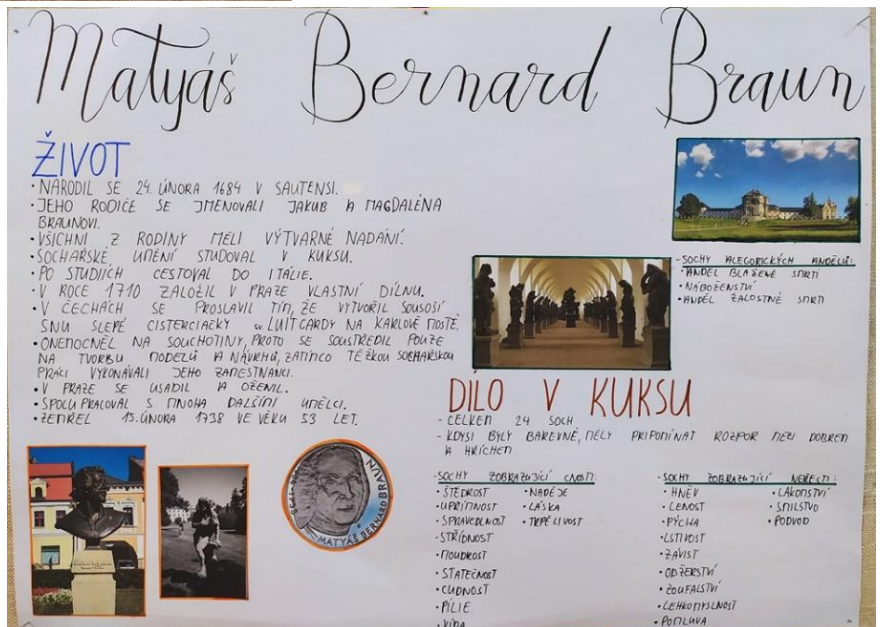 Matyáš Bernard Braun
ŽIVOT
• NARODIL SE 24. ÚNORA 1684 V SAUTENSI.
• JEHO RODIČE SE JMENOVALI JAKUB A MAGDALÉNA
BRAUNOVI.
• VŠICHNI Z RODINY MĚLI VÝTVARNÉ NADÁNÍ.
• SOCHAŘSKÉ UMĚNÍ STUDOVAL V KUKSU.
• PO STUDIÍCH CESTOVAL DO ITÁLIE.
• V ROCE 1710 ZALOŽIL V PRAZE VLASTNÍ DÍLNU.
• V ČECHÁCH SE PROSLAVIL TÍM, ŽE VYTVOŘIL SOUSOŠÍ
SNU SLEPÉ CISTERCIAČKY sv. LUITGARDY NA KARLOVĚ MOSTĚ.
• ONEMOCNĚL NA SOUCHOTINY, PROTO SE SOUSTŘEDIL POUZE
NA TVORBU MODELŮ A NÁVRHŮ, ZATÍMCO TĚŽKOU SOCHAŘSKOU
PRÁCI VYKONÁVALI JEHO ZAMĚSTNANCI.
• V PRAZE SE USADIL A OŽENIL.
• SPOLUPRACOVAL S MNOHA DALŠÍMI UMĚLCI.
• ZEMŘEL 15. ÚNORA 1738 VE VĚKU 53 LET.
MATYÁŠ BERNARD BRAUN
- SOCHY ALEGORICKÝCH ANDĚLŮ:
• ANDĚL BLAŽENÉ SMRTI
• NÁBOŽENSTVÍ
• ANDĚL ŽALOSTNÉ SMRTI
DÍLO V KUKSU
- CELKEM 24 SOCH
- KDYSI BYLY BAREVNÉ, MĚLY PŘIPOMÍNAT ROZPOR MEZI DOBREM
A HŘÍCHEM
- SOCHY ZOBRAZUJÍCÍ CNOSTI:
• ŠTĚDROST
• UPŘÍMNOST
• SPRAVEDLNOST
• STŘÍDMOST
• MOUDROST
• STATEČNOST
• CUDNOST
• PÍLE
• VÍRA
• NADĚJE
• LÁSKA
• TRPĚLIVOST
- SOCHY ZOBRAZUJÍCÍ NEŘESTI:
• HNĚV
• LENOST
• PÝCHA
• LSTIVOST
• ZÁVIST
• OBŽERSTVÍ
• ZOUFALSTVÍ
• LEHKOMYSLNOST
• POMLUVA
• LAKOMSTVÍ
• SMILSTVO
• PODVOD